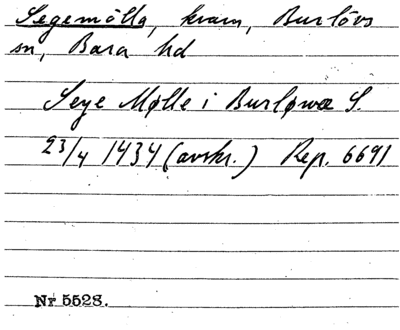 Segemölla, kvarn, Burlövs
sn, Bara hd
Sege Mølle i Burløwæ S.
23/4 1434 (avskr.) Rep. 6691
Nr 5528.